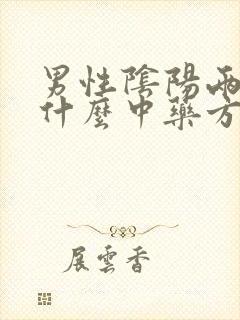 男性陰陽兩
什麼中藥方
展雲香